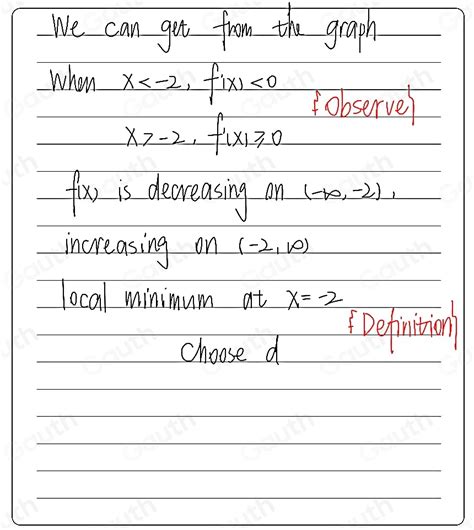 We can get from the graph
When x<-2, f'(x)<0
{Observe}
x>-2, f'(x)⩾0
f(x) is decreasing on (-∞,-2),
increasing on (-2,∞)
local minimum at x=-2
{Definition}
Choose d